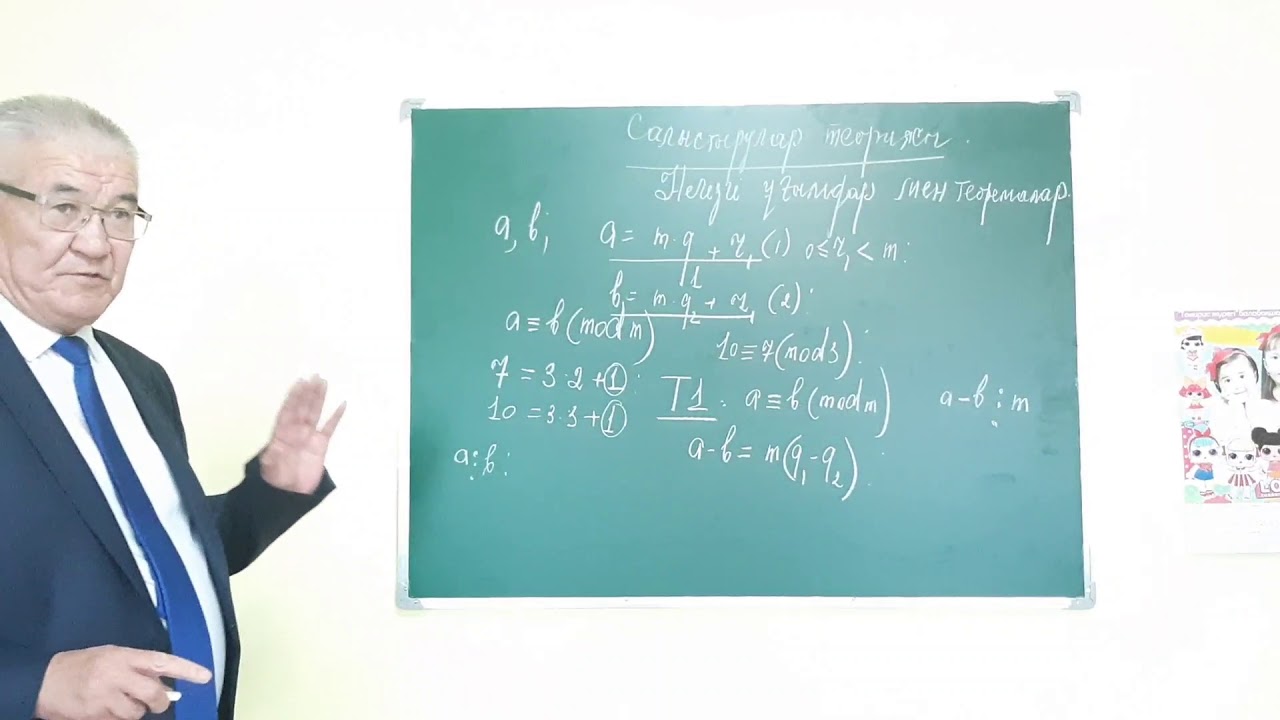 Салыстырулар теориясы.
Негізгі ұғымдар мен теоремалар.
a, b; a = m·q₁ + r₁ (1) 0 ≤ r₁ < m:
b = m·q₂ + r₁ (2):
a ≡ b (mod m) 10 ≡ 7 (mod 3):
7 = 3·2 + 1:
10 = 3·3 + 1 T1. a ≡ b (mod m) a − b ⋮ m
a − b = m(q₁ − q₂):
a ⋮ b: